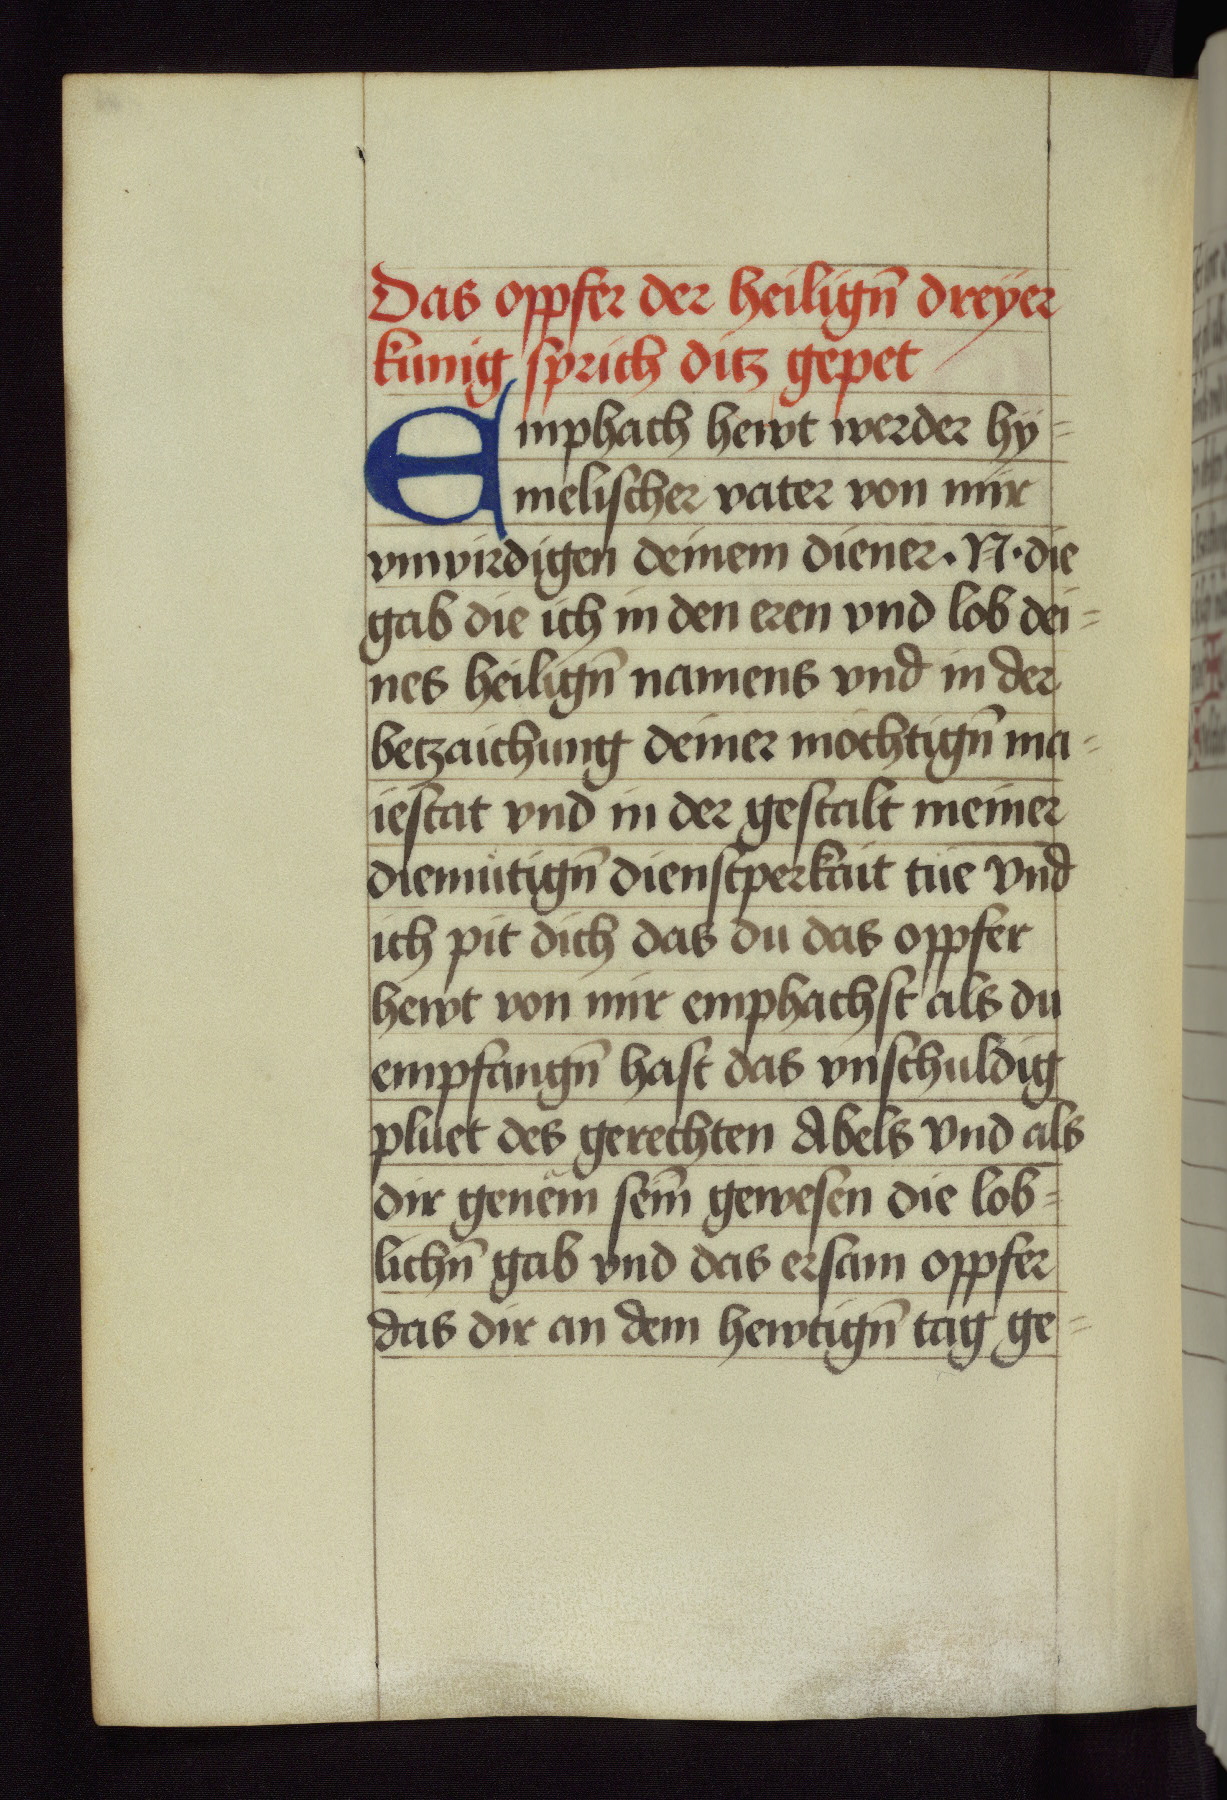 Das opfer der heilign̄ dreÿer
kunig sprich ditz gepet
Emphach hewt werder hÿ=
melischer vater von mir
vnwirdigen deinem diener · N · die
gab die ich in den eren vnd lob dei=
nes heilign̄ namens vnd in der
betzaichung deiner mochtign̄ ma=
iestat vnd in der gestalt meiner
diemütign̄ dienstperkait tüe Vnd
ich pit dich das du das opfer
hewt von mir emphachst als du
empfangn̄ hast das vnschuldig
pluet des gerechten Abels Vnd als
dir genäm sein̄ gewesen die lob=
lichn̄ gab vnd das ersam opfer
das dir an dem hewtign̄ tag ge=